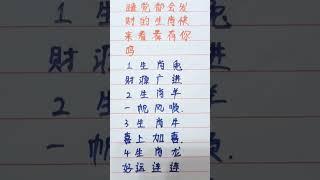 睡觉都会发
财的生肖快
来看看有你
吗
1生肖兔
财源广进
2生肖羊
一帆风顺.
3生肖牛
喜上加喜.
4生肖龙
好运连连